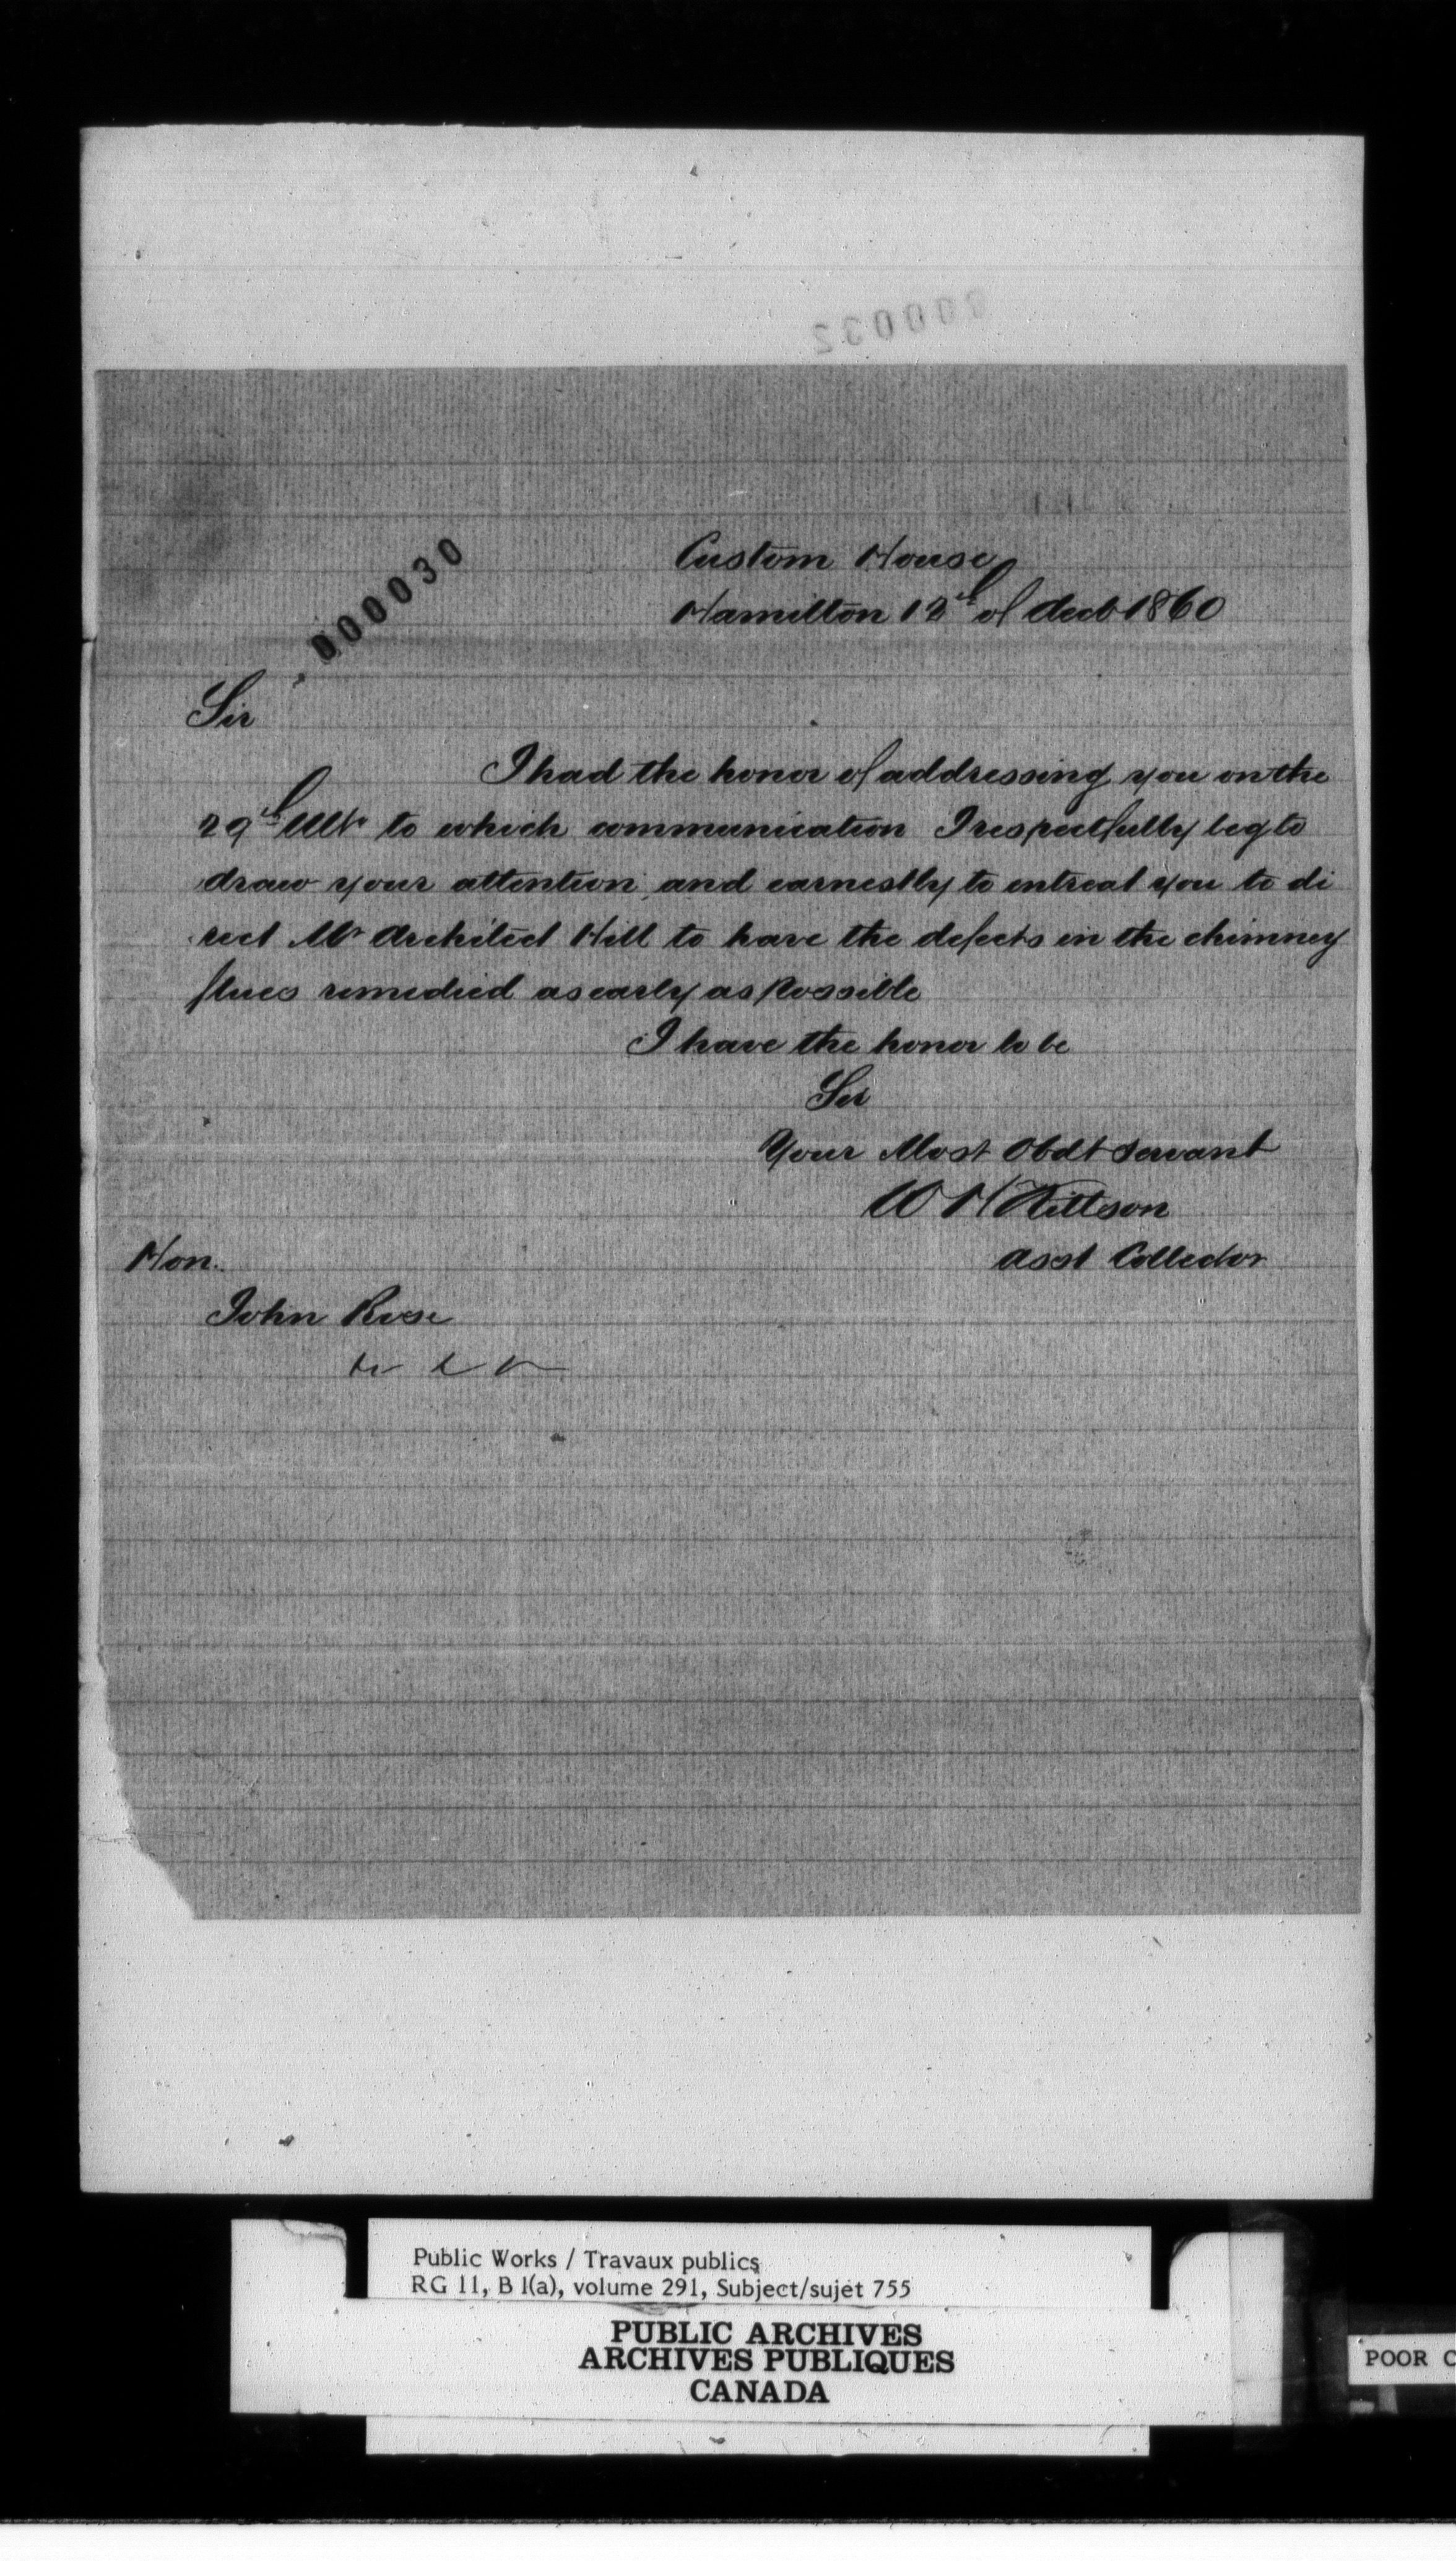 000032
Custom House
000030
Hamilton 12th of decb 1860
Sir
I had the honor of addressing you on the
29th Ultr to which communication I respectfully beg to
draw your attention, and earnestly to entreat you to di
rect Mr Architect Hill to have the defects in the chimney
flues remedied as early as Possible
I have the honor to be
Sir
Your Most Obdt Servant
W H Kittson
Asst Collector
Hon.
John Rose
Public Works / Travaux publics
RG 11, B 1(a), volume 291, Subject/sujet 755
PUBLIC ARCHIVES
ARCHIVES PUBLIQUES
CANADA
POOR